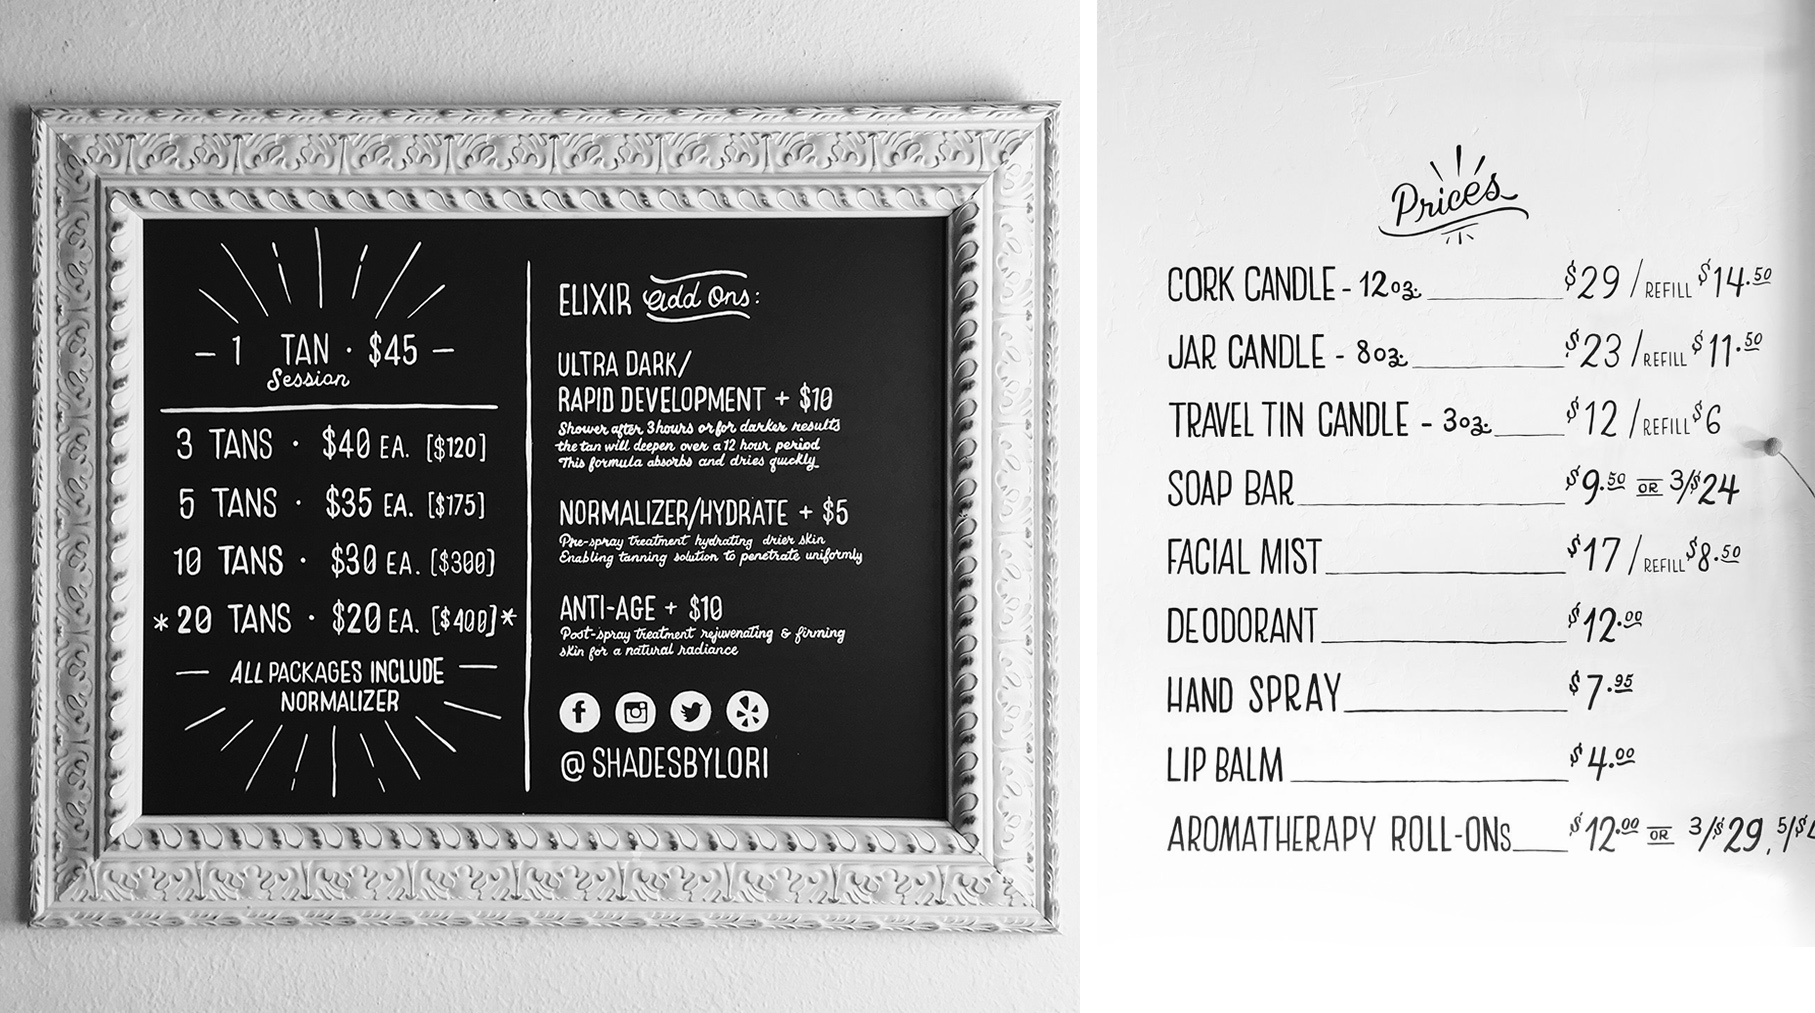 — 1 TAN · $45 —
Session
3 TANS · $40 EA. [$120]
5 TANS · $35 EA. [$175]
10 TANS · $30 EA. [$300]
*20 TANS · $20 EA. [$400]*
— ALL PACKAGES INCLUDE —
NORMALIZER
ELIXIR add Ons:
ULTRA DARK/
RAPID DEVELOPMENT + $10
Shower after 3 hours or for darker results
the tan will deepen over a 12 hour period
This formula absorbs and dries quickly
NORMALIZER/HYDRATE + $5
Pre-spray treatment hydrating drier skin
Enabling tanning solution to penetrate uniformly
ANTI-AGE + $10
Post-spray treatment rejuvenating & firming
skin for a natural radiance
@SHADESBYLORI
Prices
CORK CANDLE - 12oz. $29 / REFILL $14.50
JAR CANDLE - 8oz. $23 / REFILL $11.50
TRAVEL TIN CANDLE - 3oz. $12 / REFILL $6
SOAP BAR $9.50 OR 3/$24
FACIAL MIST $17 / REFILL $8.50
DEODORANT $12.00
HAND SPRAY $7.95
LIP BALM $4.00
AROMATHERAPY ROLL-ONS $12.00 OR 3/$29, 5/$